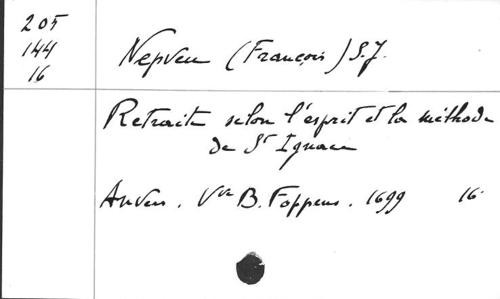 205
144
16
Nepveu (François) S.J.
Retraite selon l'esprit et la méthode
de St Ignace
Anvers. Vve B. Foppens. 1699 16°